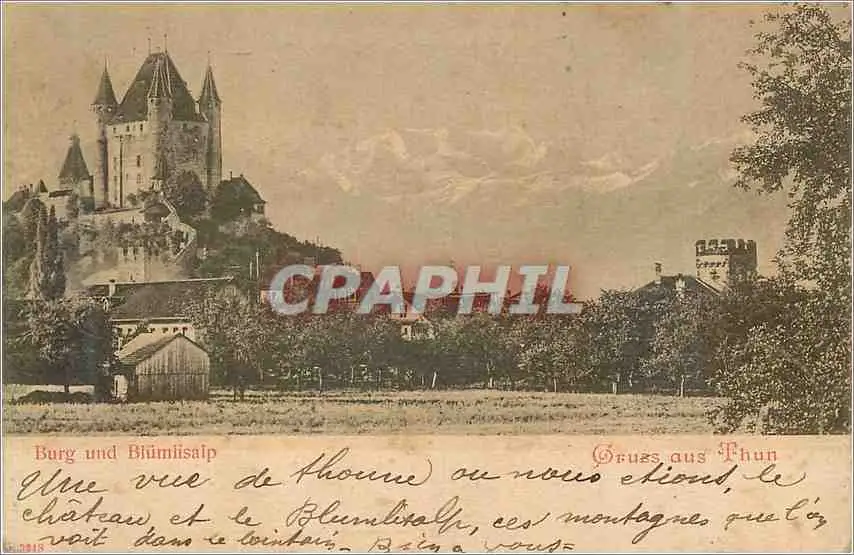 CPARHIL
Burg und Blümlisalp
Gruss aus Thun
Une vue de Thoune où nous étions, le
château et le Blumlisalp, ces montagnes que l'on
voit dans le lointain - Bien à vous =